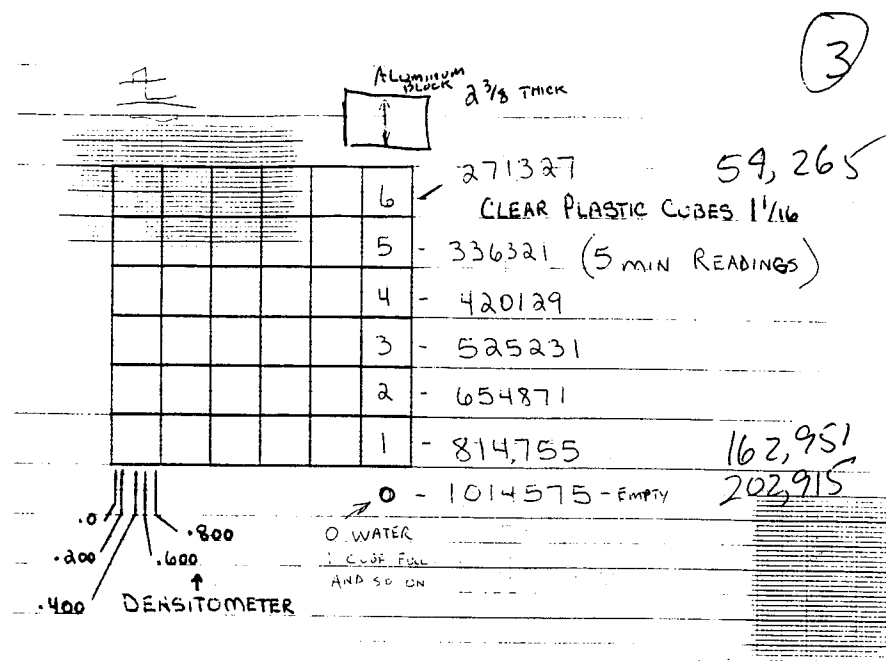 3
ALUMINUM
BLOCK
2 3/8 THICK
6 271327 59,265
CLEAR PLASTIC CUBES 1 1/16
5 - 336321 (5 MIN READINGS)
4 - 420129
3 - 525231
2 - 654871
1 - 814,755 162,951
0 - 1014575 - EMPTY 202,915
.0
.200
.400
.600
.800
DENSITOMETER
0 WATER
1 CUBE FULL
AND SO ON